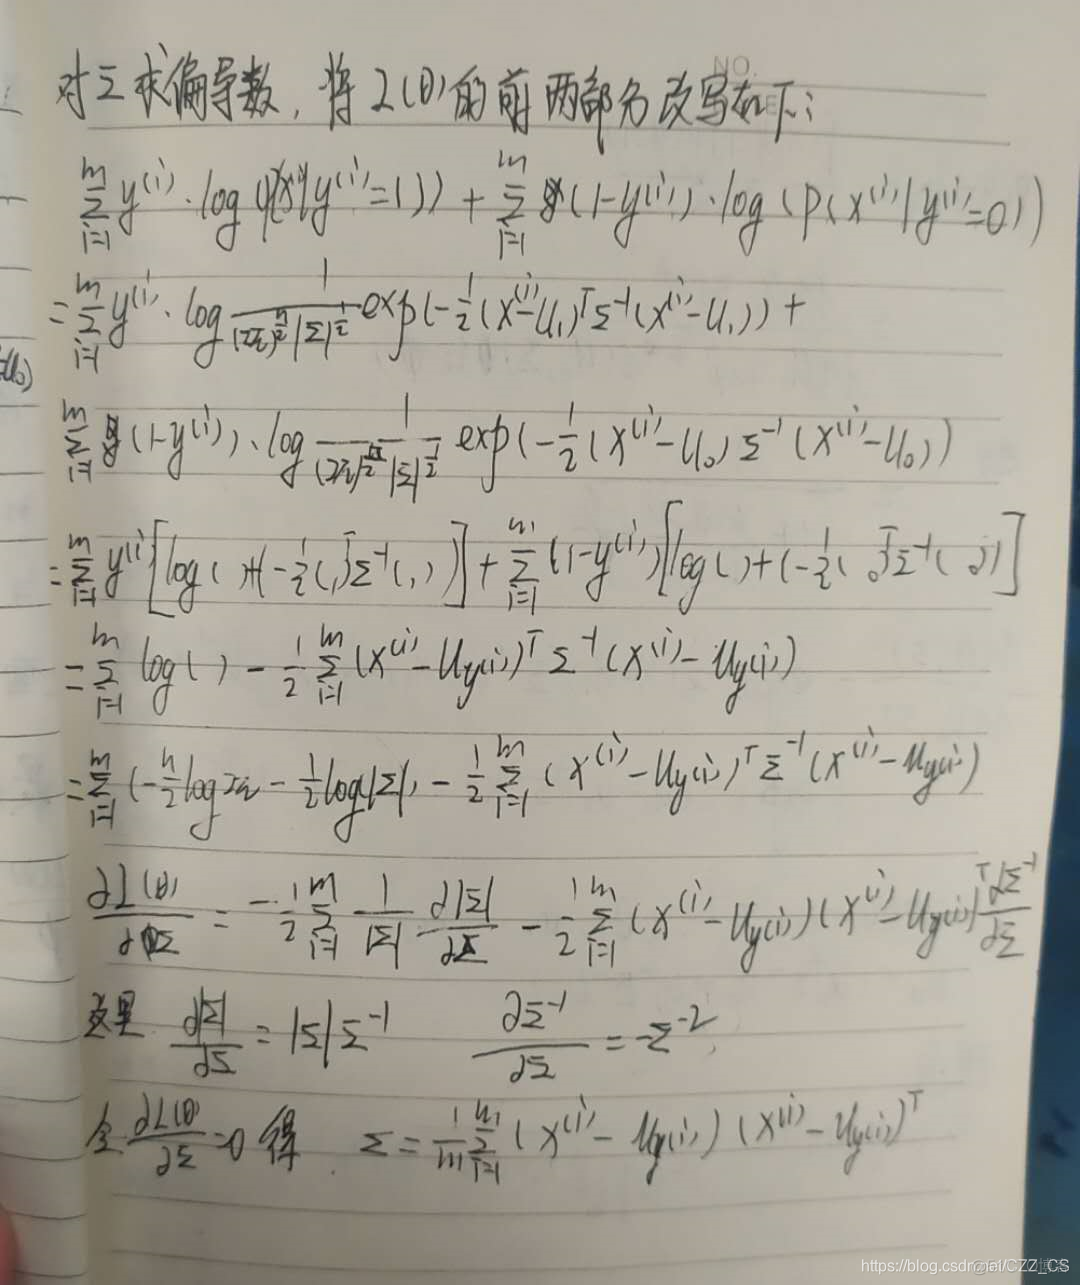 NO.
对Σ求偏导数，将L(θ)的前两部分改写如下：
∑_{i=1}^{m} y^{(i)}·log(p(x^{(i)}|y^{(i)}=1)) + ∑_{i=1}^{m} (1-y^{(i)})·log(p(x^{(i)}|y^{(i)}=0))
=∑_{i=1}^{m} y^{(i)}·log \frac{1}{(2π)^{\frac{n}{2}}|Σ|^{\frac{1}{2}}} exp(-\frac{1}{2}(x^{(i)}-u_1)^T Σ^{-1}(x^{(i)}-u_1)) +
u_0)
∑_{i=1}^{m} (1-y^{(i)})·log \frac{1}{(2π)^{\frac{n}{2}}|Σ|^{\frac{1}{2}}} exp(-\frac{1}{2}(x^{(i)}-u_0)Σ^{-1}(x^{(i)}-u_0))
=∑_{i=1}^{m} y^{(i)}[log( )+(-\frac{1}{2}(_1)^T Σ^{-1}(_1)] + ∑_{i=1}^{m} (1-y^{(i)})[log( )+(-\frac{1}{2}(_0)^T Σ^{-1}(_0)]
=∑_{i=1}^{m} log( ) - \frac{1}{2}∑_{i=1}^{m} (x^{(i)}-u_{y(i)})^T Σ^{-1}(x^{(i)}-u_{y(i)})
=∑_{i=1}^{m} (-\frac{n}{2}log2π - \frac{1}{2}log|Σ|) - \frac{1}{2}∑_{i=1}^{m} (x^{(i)}-u_{y(i)})^T Σ^{-1}(x^{(i)}-u_{y(i)})
\frac{∂L(θ)}{∂Σ} = -\frac{1}{2}∑_{i=1}^{m} \frac{1}{|Σ|} \frac{∂|Σ|}{∂Σ} - \frac{1}{2}∑_{i=1}^{m} (x^{(i)}-u_{y(i)})(x^{(i)}-u_{y(i)})^T \frac{∂Σ^{-1}}{∂Σ}
这里 \frac{∂|Σ|}{∂Σ} = |Σ|Σ^{-1} \frac{∂Σ^{-1}}{∂Σ} = -Σ^{-2},
令\frac{∂L(θ)}{∂Σ}=0 得 Σ = \frac{1}{m}∑_{i=1}^{m} (x^{(i)}-u_{y(i)})(x^{(i)}-u_{y(i)})^T